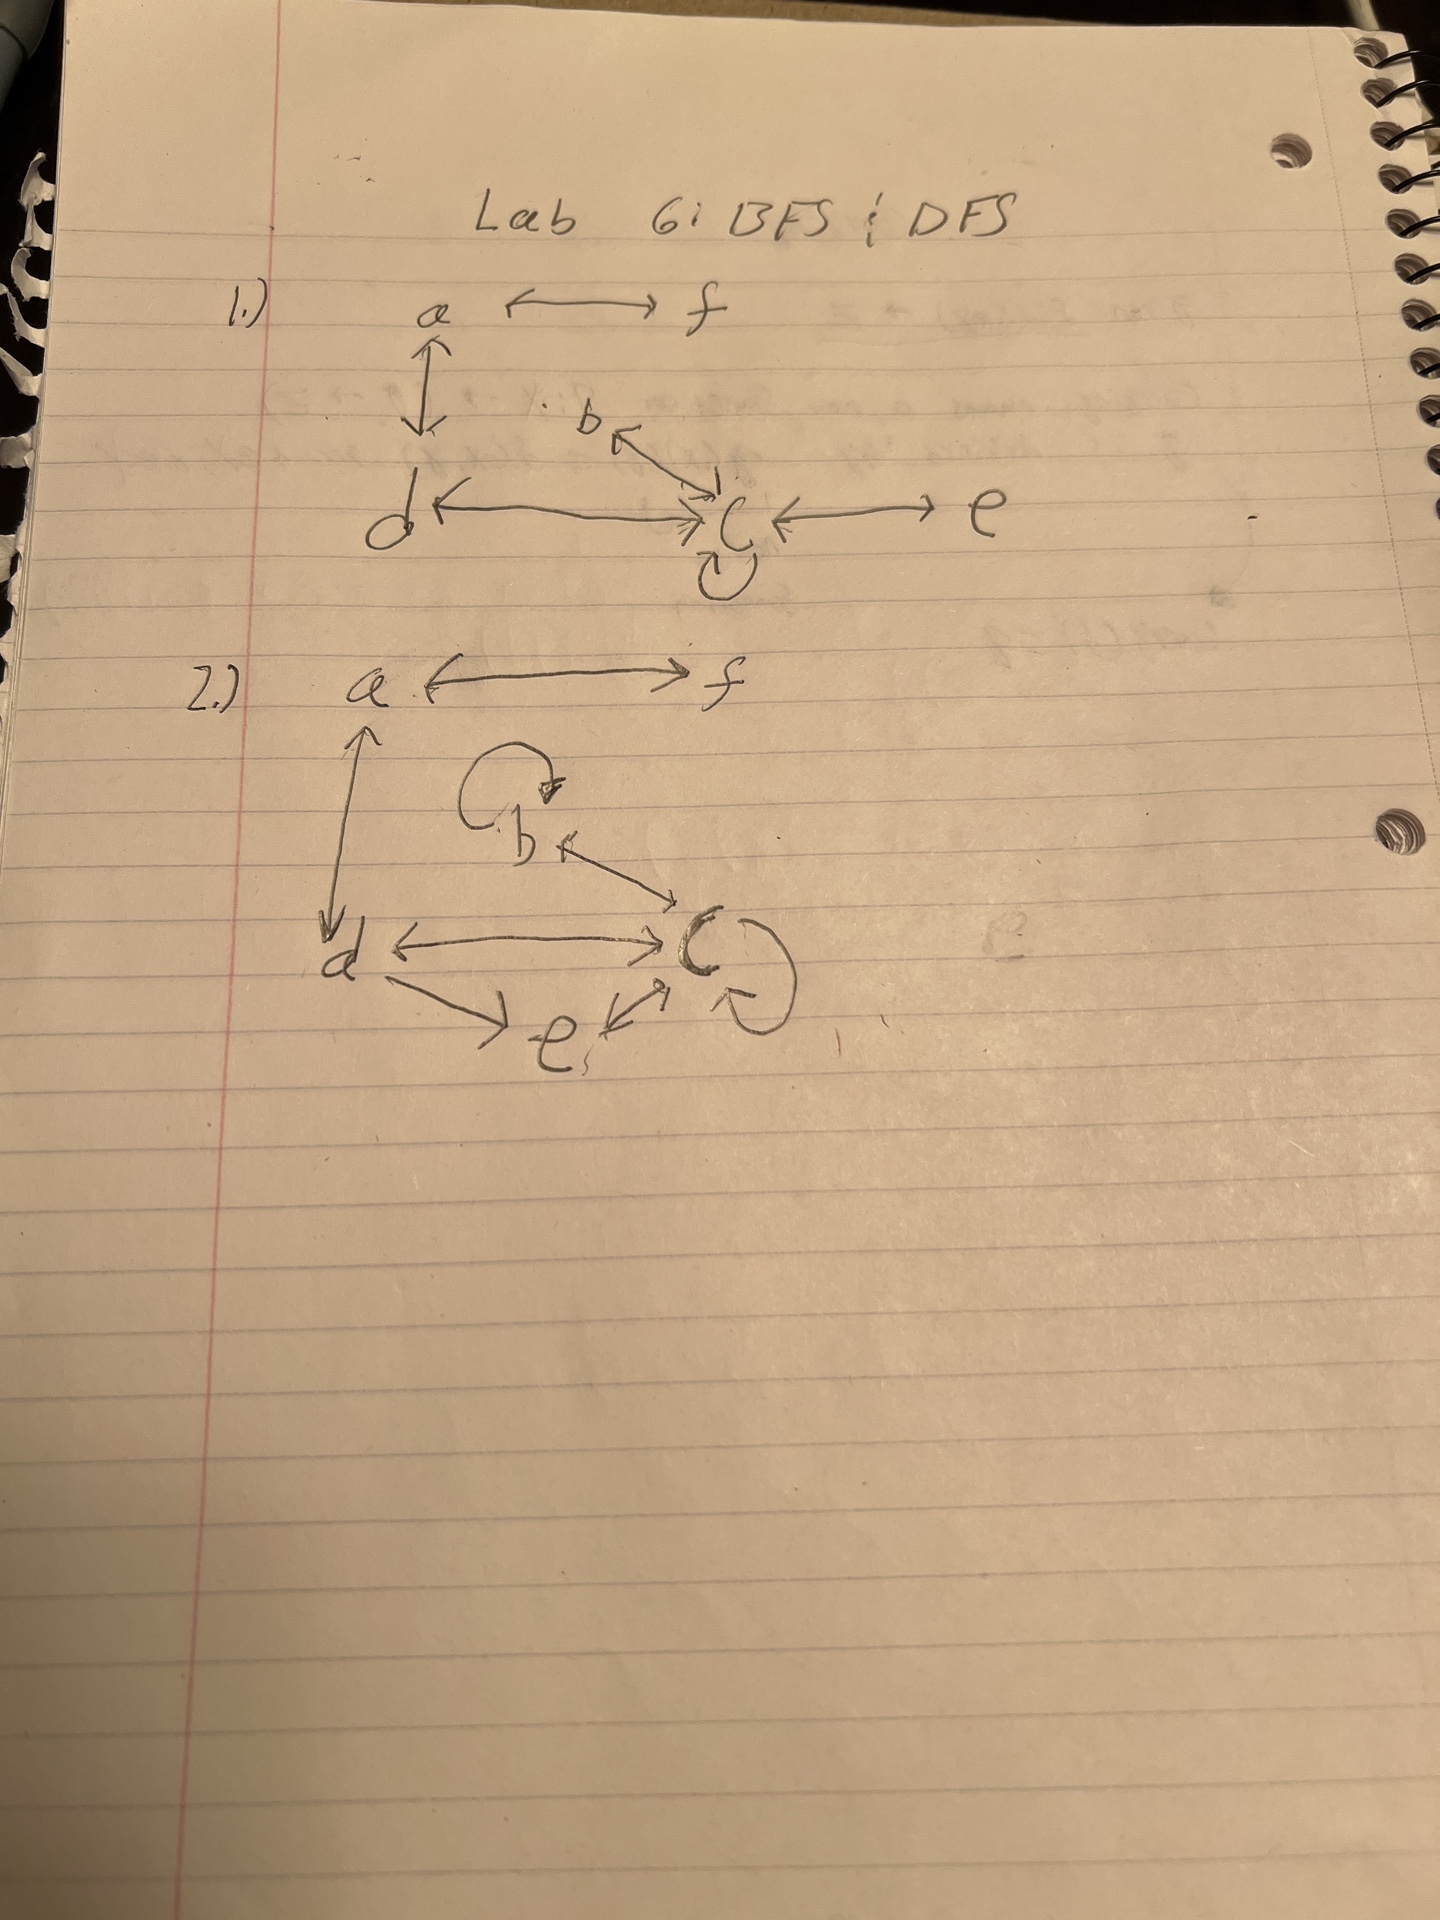 Lab 6: BFS & DFS
1.) a f
b
d c e
2.) a f
b
d c
e